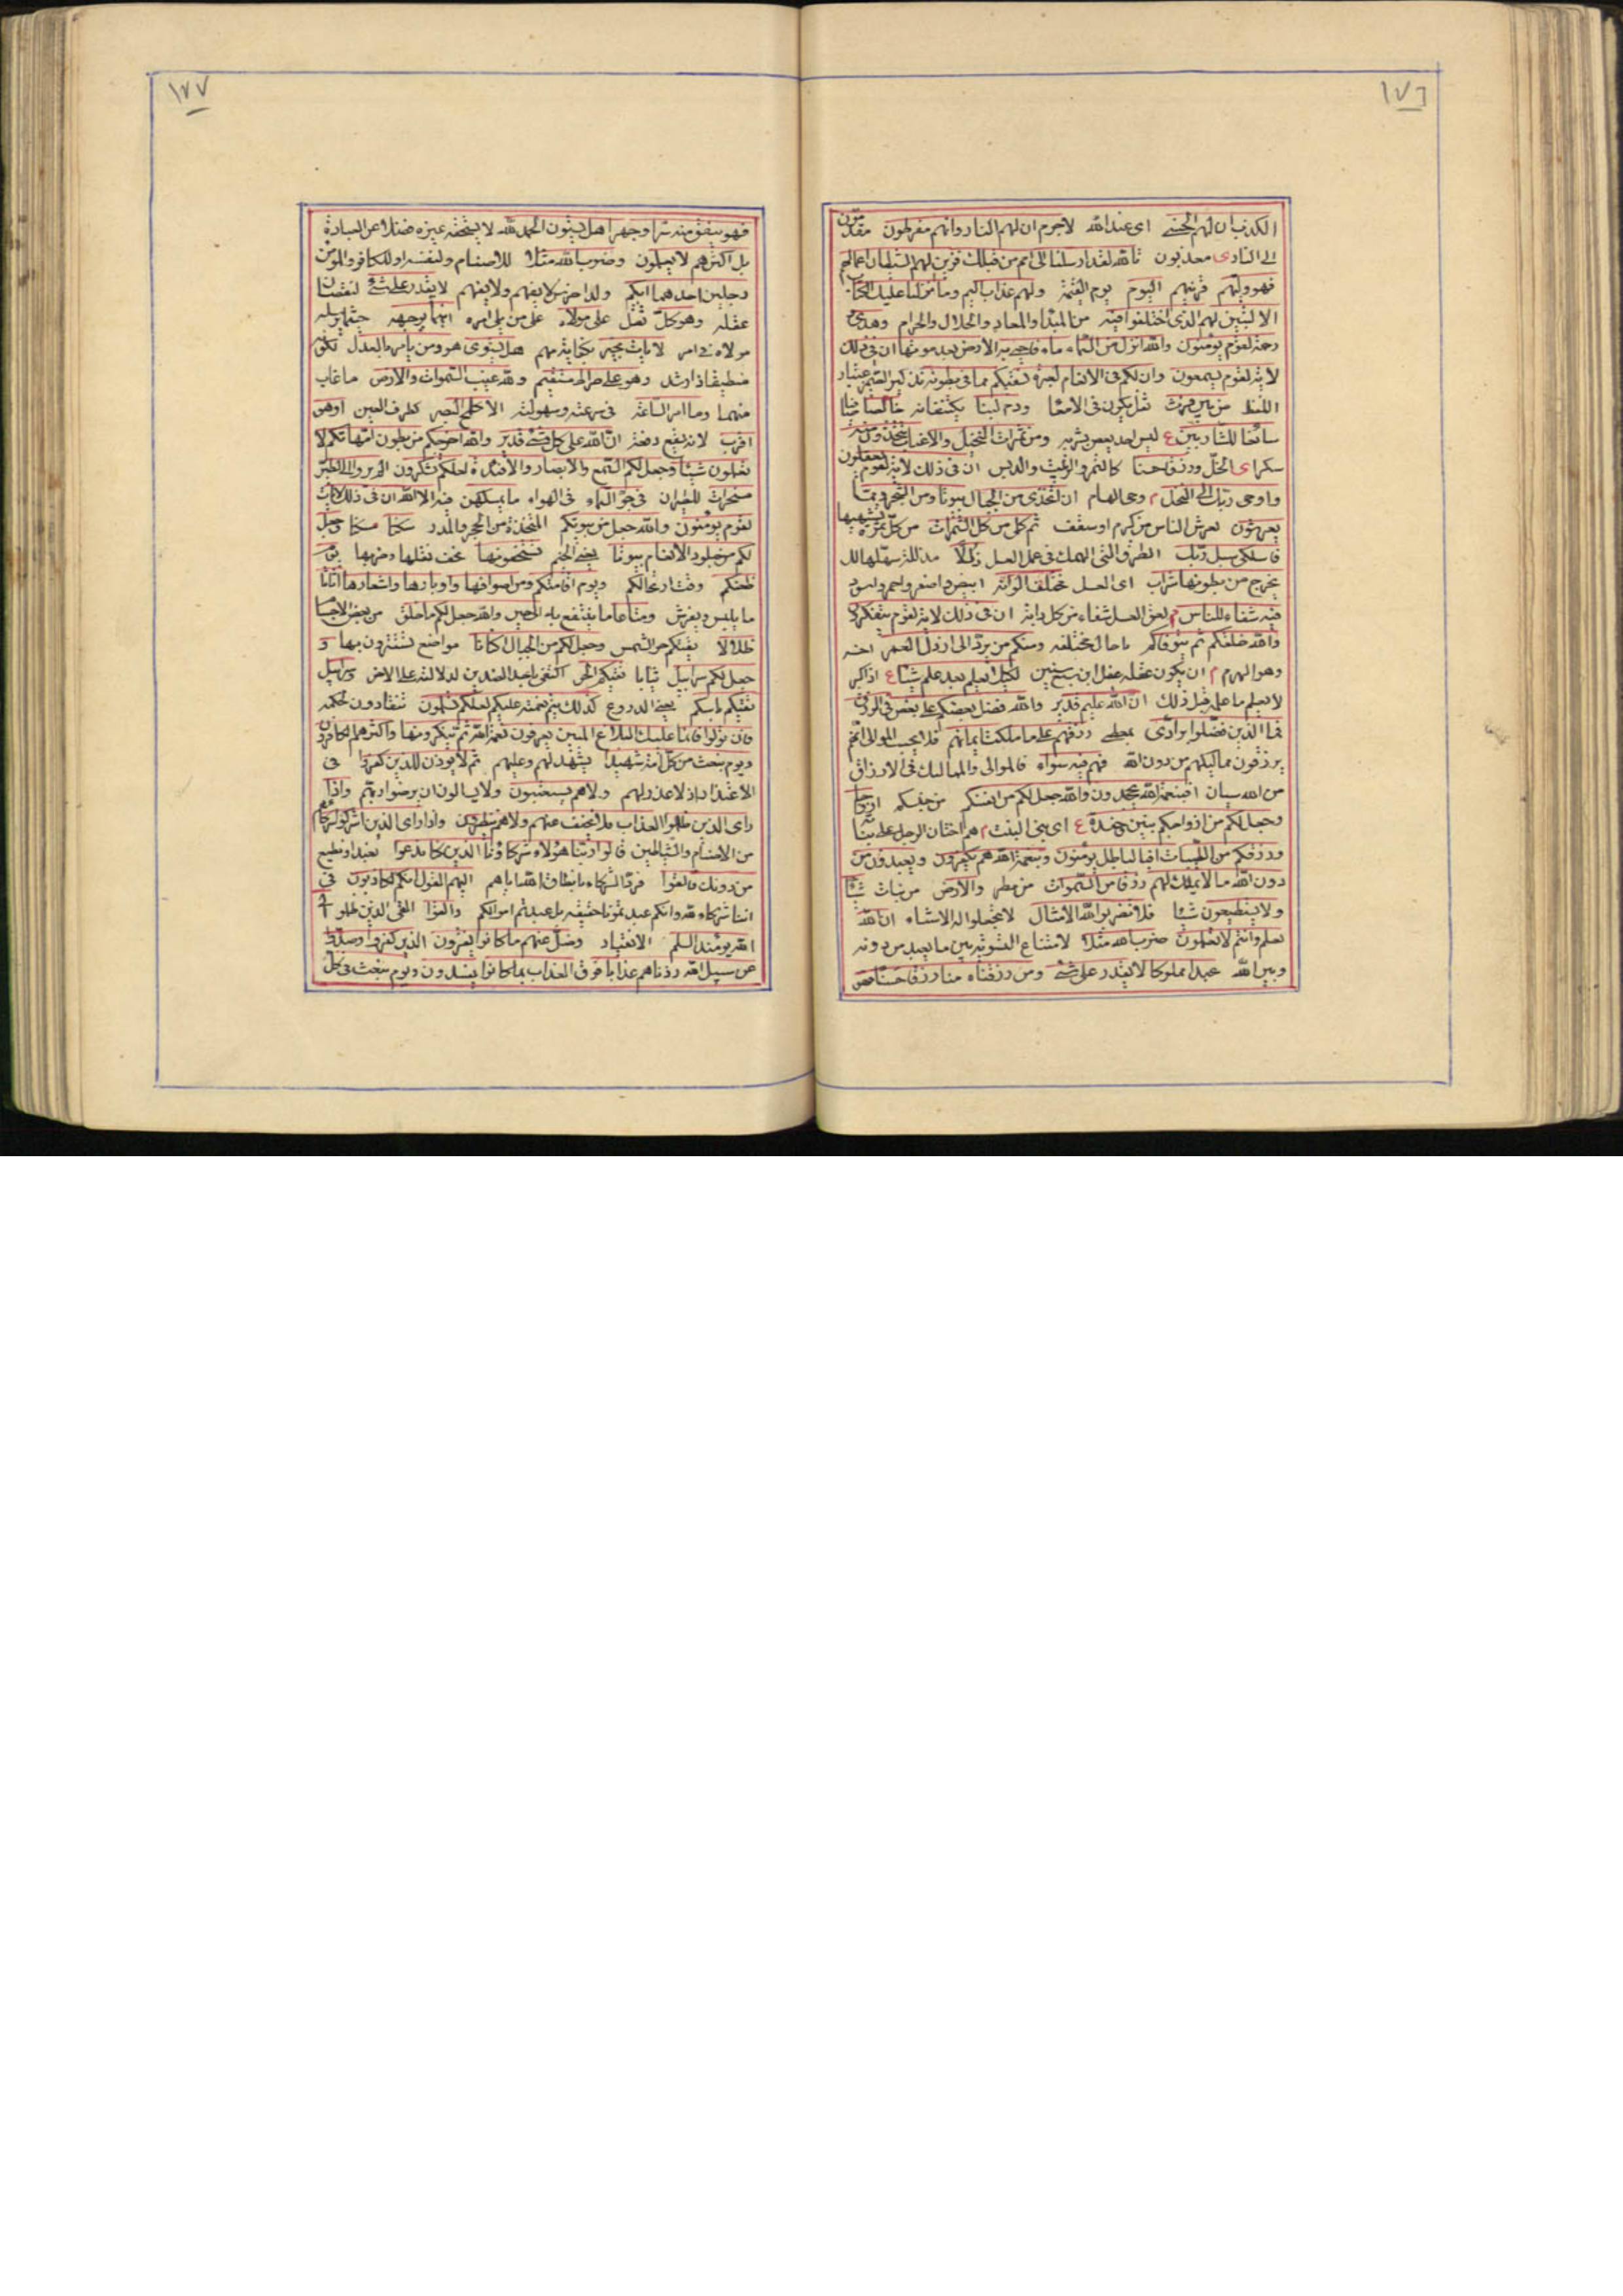 ١٧٦
الكذب ان لهم الحسنى اى عند الله لا جرم ان لهم النار وانهم مفرطون مقدمون
الى النار ى معذبون تالله لقد ارسلنا الى امم من قبلك فزين لهم الشيطان اعمالهم
فهو وليهم قرينهم اليوم يوم القيمة ولهم عذاب اليم وما انزلنا عليك الكتاب
الا لتبين لهم الذى اختلفوا فيه من المبدأ والمعاد والحلال والحرام وهدى و
رحمة لقوم يؤمنون والله انزل من السماء ماء فاحيى به الارض بعد موتها ان فى ذلك
لاية لقوم يسمعون وان لكم فى الانعام لعبرة نسقيكم مما فى بطونه تذكير الضمير باعتبار
اللفظ من بين فرث ثفل يكون فى الامعا ودم لبنا يكتنفانه خالصا
سائغا للشاربين ع ليس احد يغص بشربه ومن ثمرات النخيل والاعناب تتخذون منه
سكرا ى الخل ورزقا حسنا كالتمر والزبيب والدبس ان فى ذلك لاية لقوم يعقلون
واوحى ربك الى النحل م وحى الهام ان اتخذى من الجبال بيوتا ومن الشجر ومما
يعرشون يعرش الناس من كرم او سقف ثم كلى من كل الثمرات من كل ثمرة تشتهيها
فاسلكى سبل ربك الطرق التى الهمك فى عمل العسل ذللا مذللة سهلها لك
يخرج من بطونها شراب اى العسل مختلف الوانه ابيض واصفر واحمر واسود
فيه شفاء للناس م لعق العسل شفاء من كل داء ان فى ذلك لاية لقوم يتفكرون
والله خلقكم ثم يتوفاكم باجال مختلفه ومنكم من يرد الى ارذل العمر اخسه
وهو الهرم م ان يكون عقله عقل ابن سبع سنين لكيلا يعلم بعد علم شيئا ع اذا كبر
لا يعلم ما علمه قبل ذلك ان الله عليم قدير والله فضل بعضكم على بعض فى الرزق
فما الذين فضلوا برادى بمعطى رزقهم على ما ملكت ايمانهم فلا يحسب الموالى انهم
يرزقون مماليكهم من دون الله فهم فيه سواء فالموالى والمماليك فى الارزاق
من الله سيان افبنعمة الله يجحدون والله جعل لكم من انفسكم من جنسكم ازواجا
وجعل لكم من ازواجكم بنين وحفدة ع اى بنى البنت م هم اختان الرجل على بناته
ورزقكم من الطيبات افبالباطل يؤمنون وبنعمة الله هم يكفرون ويعبدون من
دون الله ما لا يملك لهم رزقا من السموات من مطر والارض من نبات شيئا
ولا يستطيعون شيئا فلا تضربوا لله الامثال لا تجعلوا له الاشباه ان الله
يعلم وانتم لا تعلمون ضرب الله مثلا لامتناع التسوية بين ما يعبد من دونه
وبين الله عبدا مملوكا لا يقدر على شئ ومن رزقناه منا رزقا حسنا
١٧٧
فهو ينفق منه سرا وجهرا هل يستون الحمد لله لا يستحقه غيره فضلا عن العبادة
بل اكثرهم لا يعلمون وضرب الله مثلا للاصنام ولنفسه او للكافر والمؤمن
رجلين احدهما ابكم ولد اخرس لا يفهم ولا يفهم لا يقدر على شئ لنقصان
عقله وهو كل ثقل على مولاه على من يلى امره اينما يوجهه حيثما يرسله
مولاه فى امر لا يات بخير بكفاية مهم هل يستوى هو ومن يامر بالعدل
منطيق ذا رشد وهو على صراط مستقيم ولله غيب السموات والارض ما غاب
منهما وما امر الساعة فى سرعته وسهولته الا كلمح البصر كطرف العين او هو
اقرب لانه يقع دفعة ان الله على كل شئ قدير والله اخرجكم من بطون امهاتكم لا
تعلمون شيئا وجعل لكم السمع والابصار والافئدة لعلكم تشكرون الم يروا الى الطير
مسخرات للطيران فى جو السماء فى الهواء ما يمسكهن فيه الا الله ان فى ذلك لايات
لقوم يؤمنون والله جعل من بيوتكم المتخذة من الحجر والمدر سكنا مسكنا وجعل
لكم من جلود الانعام بيوتا يعنى الخيم تستخفونها يخف نقلها وضربها يوم
ظعنكم وقت ارتحالكم ويوم اقامتكم ومن اصوافها واوبارها واشعارها اثاثا
ما يلبس ويفرش ومتاعا ما ينتفع به الى حين والله جعل لكم مما خلق من بعض الاجسام
ظلالا يقيكم حر الشمس وجعل لكم من الجبال اكنانا مواضع تستترون بها و
جعل لكم سرابيل ثيابا تقيكم الحر اكتفى باحد الضدين لدلالته على الاخر وسرابيل
تقيكم باسكم يعنى الدروع كذلك يتم نعمته عليكم لعلكم تسلمون تنقادون لحكمه
فان تولوا فانما عليك البلاغ المبين يعرفون نعمة الله ثم ينكرونها واكثرهم الكافرون
ويوم نبعث من كل امة شهيدا يشهد لهم وعليهم ثم لا يؤذن للذين كفروا فى
الاعتذار اذ لا عذر لهم ولا هم يستعتبون ولا يسالون ان يرضوا ربهم واذا
راى الذين ظلموا العذاب فلا يخفف عنهم ولا هم ينظرون واذا راى الذين اشركوا شركاءهم
من الاصنام والشياطين قالوا ربنا هؤلاء شركاؤنا الذين كنا ندعوا نعبد او نطيع
من دونك فالقوا فرد الشركاء بانطاق الله اياهم اليهم القول انكم لكاذبون فى
اننا شركاء لله وانكم عبدتمونا حقيقة بل عبدتم اهوائكم والقوا القى الذين ظلموا الى
الله يومئذ السلم الانقياد وضل عنهم ما كانوا يفترون الذين كفروا وصدوا
عن سبيل الله زدناهم عذابا فوق العذاب بما كانوا يفسدون ويوم نبعث فى كل